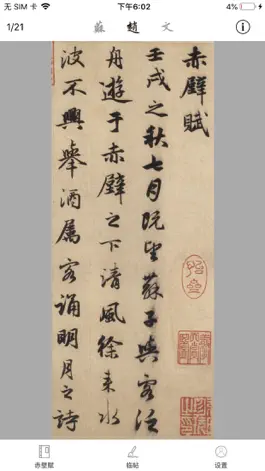 无 SIM 卡 下午6:02 4%
1/21 蘇 趙 文
赤壁賦
壬戌之秋七月既望蘇子與客泛
舟遊于赤壁之下清風徐来水
波不興舉酒属客誦明月之詩
赤壁赋 临帖 设置